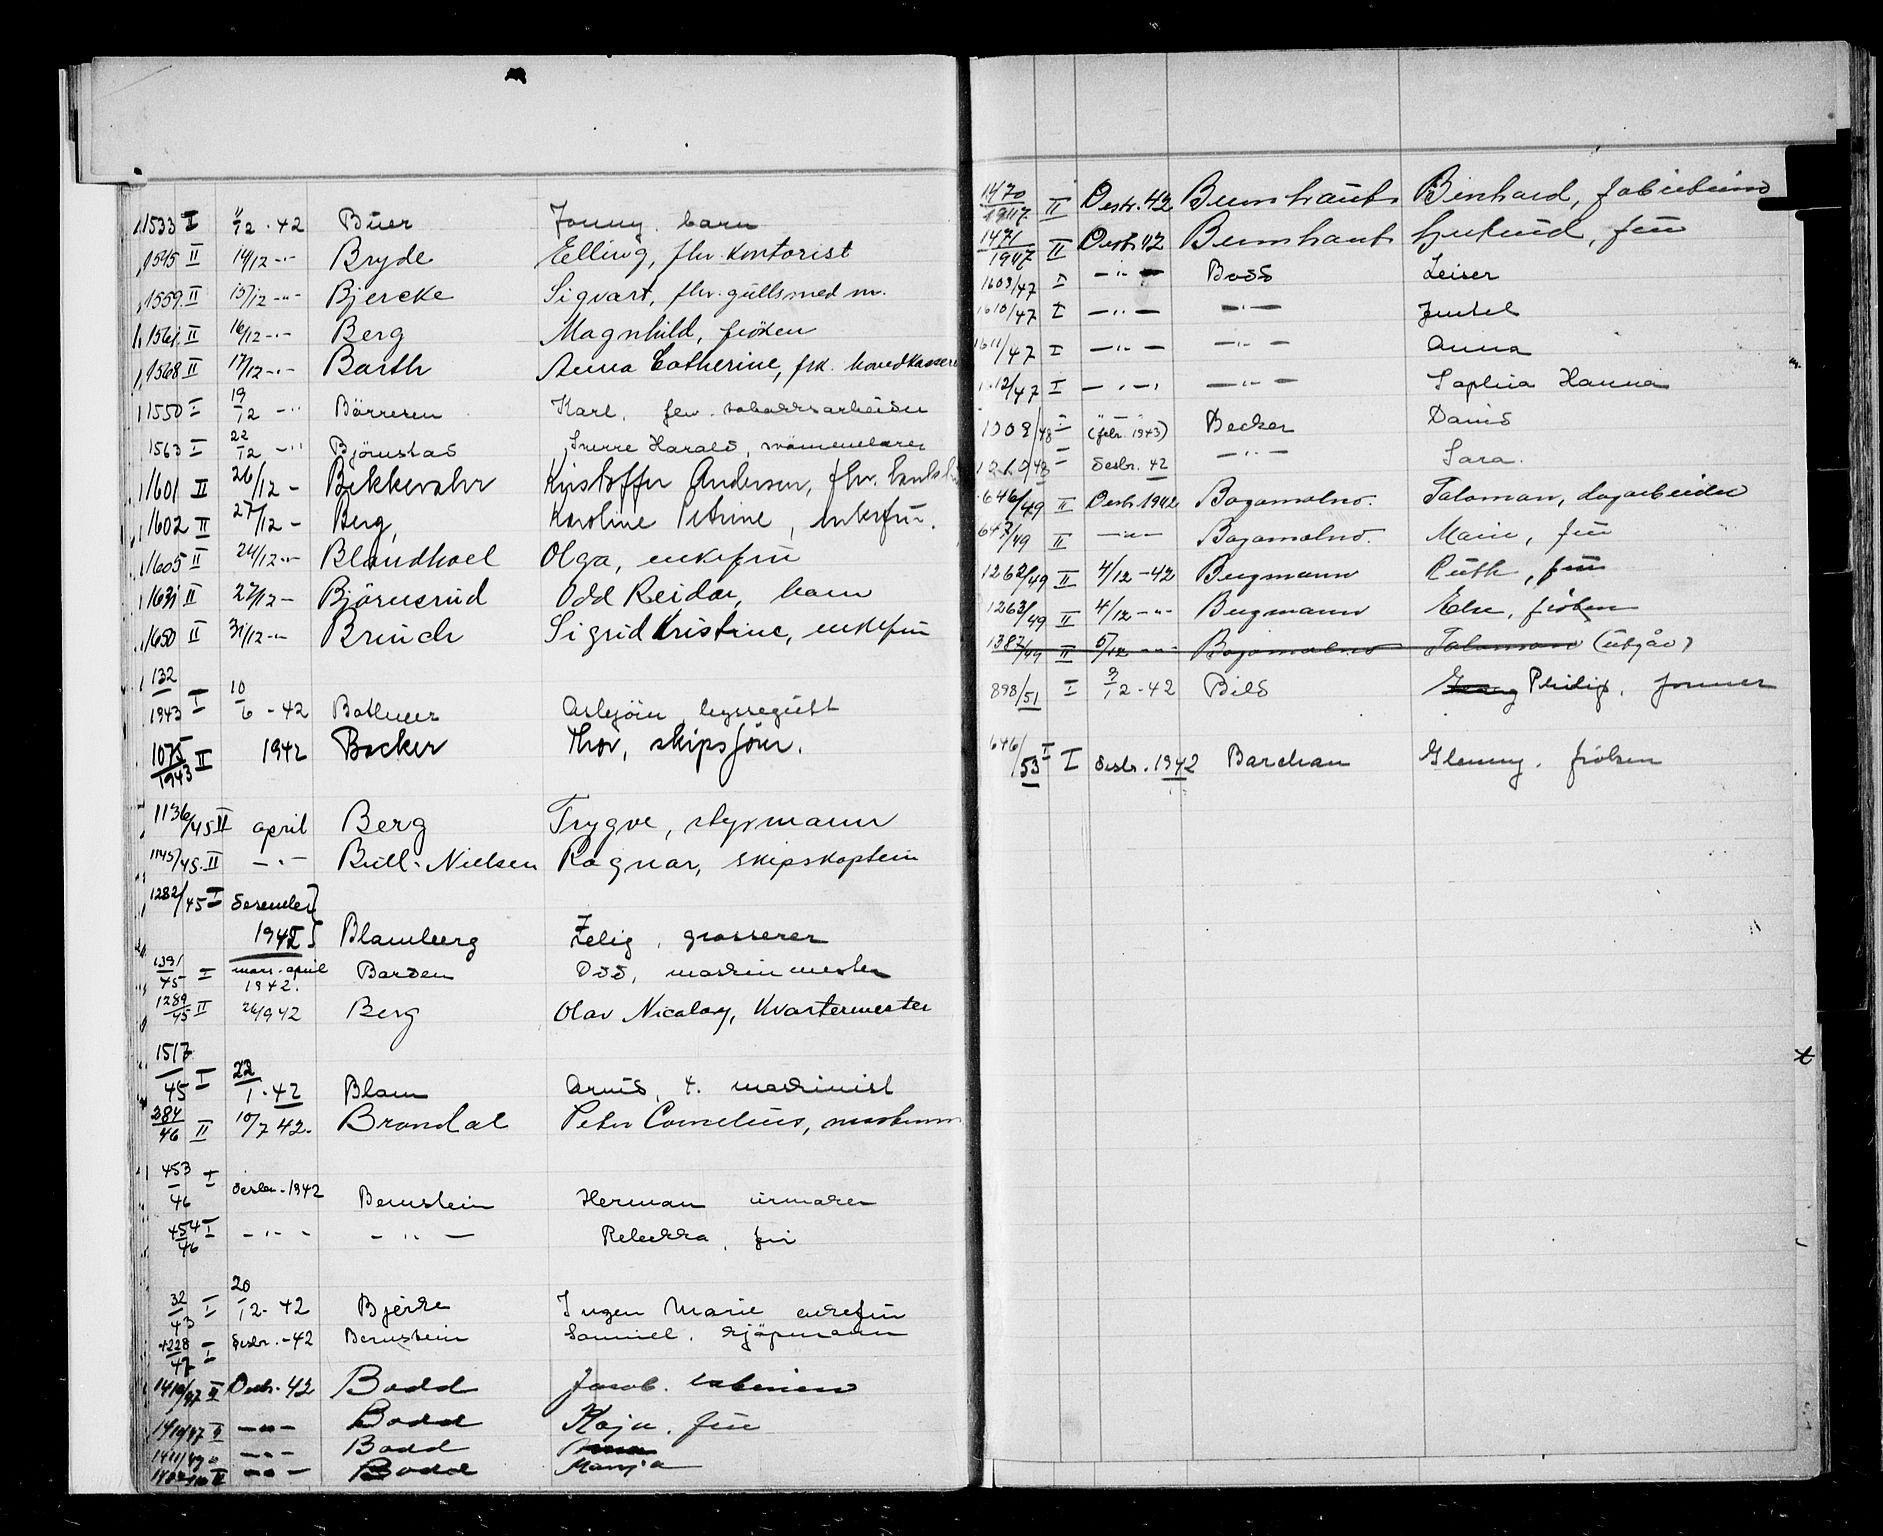 1533 I 11/12 - 42 Buer Jonny. barn
1545 II 14/12 -"- Bryde Elling, fhv. kontorist
1559 II 15/12 -"- Bjercke Sigvart, fhv. gullsmed m.
1561 II 16/12 -"- Berg Magnhild, frøken
1568 II 17/12 -"- Barth Anna Catherine, frk. hovedkassere
1550 I 19/12 -"- Börresen Karl, fhv. tobakksarbeider
1563 I 22/12 -"- Björnstad Sverre Harald, svömmelærer
1601 II 26/12 - Bekkevahr Kristoffer Andersen, fhv.
1602 II 27/12 - Berg, Karoline Petrine, enkefru.
1605 II 24/12 -"- Blandhoel Olga, enkefru
1631 II 27/12 - Bjørnsrud Odd Reidar, barn
1650 II 31/12 -"- Bruuch Sigrid Kristine, enkefru
132/1943 I 10/6 - 42 Bothner Asbjörn, byssegutt
1075/1943 II 1942 Becker Thor, skipsförer.
1136/45 II april Berg Trygve, styrmann
1145/45 II -"- Bull-Nielsen Ragnar, skipskaptein
1282/45 I desember
1942 Blamberg Zelig, grosserer
1391/45 I mars-april 1942. Barden Odd, maskinmester
1289/45 II 26/9 42 Berg Olav Nicolay, kvartermester
1517/45 I 22/1 - 42 Blom Arvid, 4. maskinist
384/46 II 10/7 42. Brandal Peter Cornelius,
453/46 I desbr. - 1942 Bernstein Herman urmaker
454/46 I -"- -"- Rebekka, fru
32/43 I 20/12 - 42 Bjerke Inger Marie enkefru
1228/47 I desbr. - 42 Bernstein Samuel, kjöpmann
1410/47 II Desb. 42 Bodd Jacob.
II -"- Bodd Kaja. fru
-"- Bodd
II -"- Bodd Manja
1470/1947 II Desbr. 42 Bernhaut
1471/1947 II Desb. 42 Bernhaut fru
1609/47 I -"- Bodd Leiser
1610/47 I -"- -"- Jentel
1611/47 I -"- -"- Anna
1612/47 I -"- -"- Sophia Hanna
(febr. 1943) Becker David
desbr. 42 -"- Sara.
646/49 II Desb. 1942 Bogomolno. Salomon, lagarbeider
647/49 II -"- Bogomolno. Marie, fru
1262/49 II 4/12 - 42 Bergmann Ruth, fru
1263/49 II 4/12 -"- Bergmann Else, frøken
1387/49 II 5/12 -"- Bogomolno Salomon (utgår)
898/51 I 3/12 - 42 Bild Georg Philip.
646/53 I desbr. 1942 Barchan Glenny. fröken